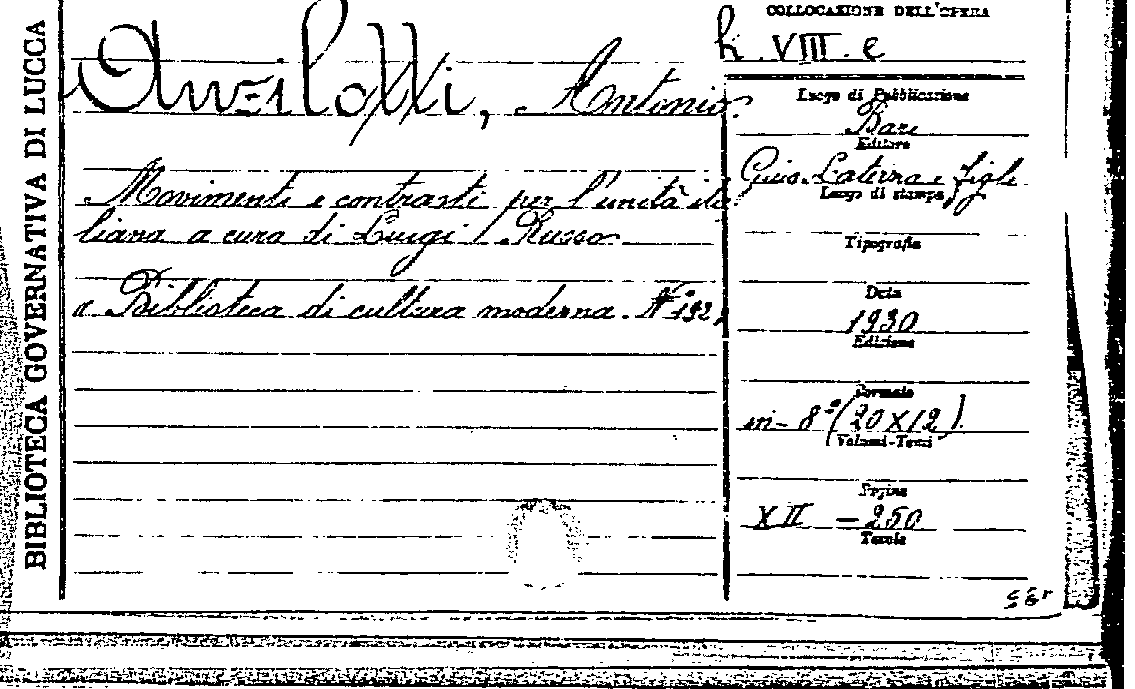 BIBLIOTECA GOVERNATIVA DI LUCCA
Anzilotti, Antonio.
Movimenti e contrasti per l'unità ita
liana a cura di Luigi Russo
Biblioteca di cultura moderna. N° 192
COLLOCAZIONE DELL'OPERA
h. VIII. e
Luogo di Pubblicazione
Bari
Editore
Gius. Laterza e figli
Luogo di stampa
Tipografia
Data
1930
Edizione
Formato
in-8° (20X12)
Volumi-Tomi
Pagine
XII - 250
Tavole